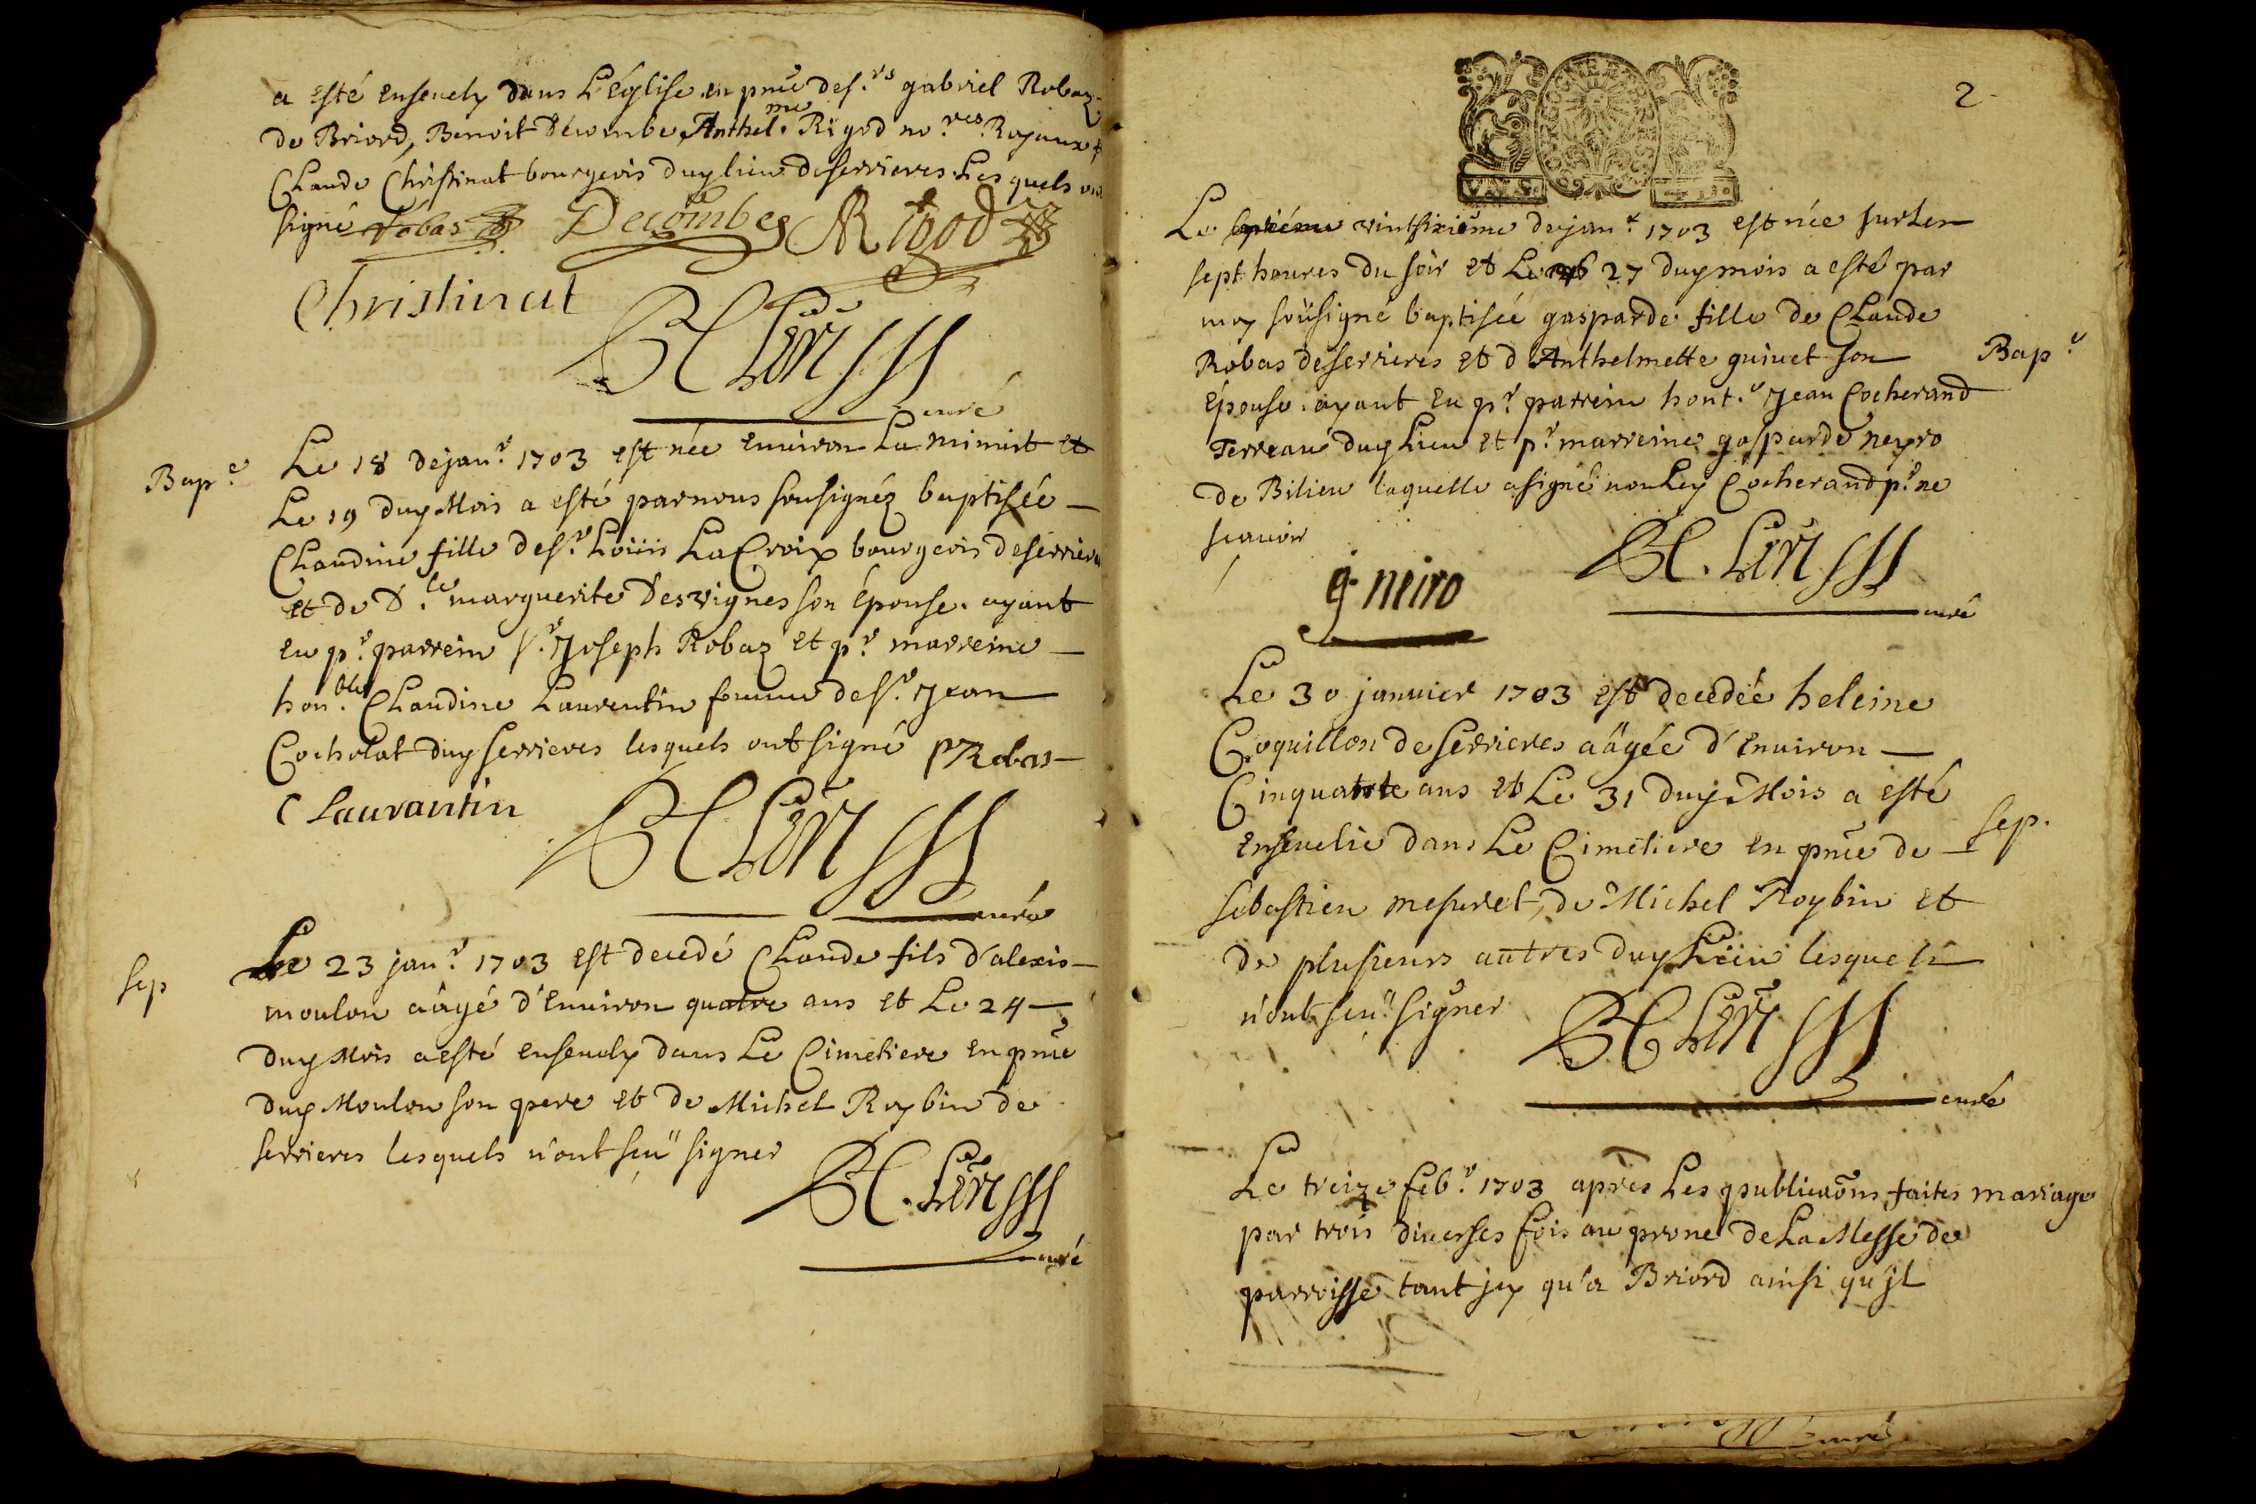 a esté ensevely dans L'Église en pnce des.rs gabriel Robaz
de Briord, Benoit Décombe, Anthelme Rigod no.res Royaux &
Claude Christinat bourgeois duy lieu de serrieres Lesquels ont
signé Robas Decombes ARigod
Christinat
curé
Bap.e
Le 18 de jan.r 1703 est née environ La minuit et
Le 19 duy Mois a esté par nous sousignéz baptisée
Claudine fille de s.r Loüis La Croix bourgeois de serrieres
et de D.lle marguerite Desvignes son Épouse. ayant
eu p.r parrein s.r Joseph Robaz et p.r marreine
hon.ble Claudine Laurentin femme de s.r Jean
Cocholat duy serrieres lesquels ont signé Robas
C Laurantin
curé
Sep
Le 23 jan.r 1703 est decedé Claude fils d'alexis
moulon aâgé d'Environ quatre ans et Le 24
duy Mois a esté ensevely dans Le Cimetiere en pnce
duy Moulon son pere et de Michel Roybin de
serrieres lesquels n'ont sçeu signer
curé
2
Le vintsixiéme de jan.r 1703 est née sur Les
sept heures du soir et Le 27 duy mois a esté par
moy soüsigné baptisée gasparde fille de Claude
Robas de serrieres et d'Anthelmette guinet son
Épouse. ayant eu p.r parrein hont.e Jean Cocherand
Terreau duy Lieu et p.r marreine gasparde neyro
de Bilieu laquelle a signé non Ley Cocherand p.r ne
scavoir
Bap.e
g. neiro
curé
Le 30 janvier 1703 est decedée heleine
Coquillon de serrieres aâgée d'Environ
Cinquante ans et Le 31 duy Mois a esté
Ensevelie dans Le Cimetiere en pnce de
sebastien mesuret, de Michel Roybin et
de plusieurs autres duy Lieu lesquels
n'ont sçeu signer
Sep.
curé
Le treize feb.r 1703 apres Les publicaons faites
par trois diverses fois au prone de La Messe de
parroisse tant icy qu'a Briord ainsi qu'jl
mariage
curé